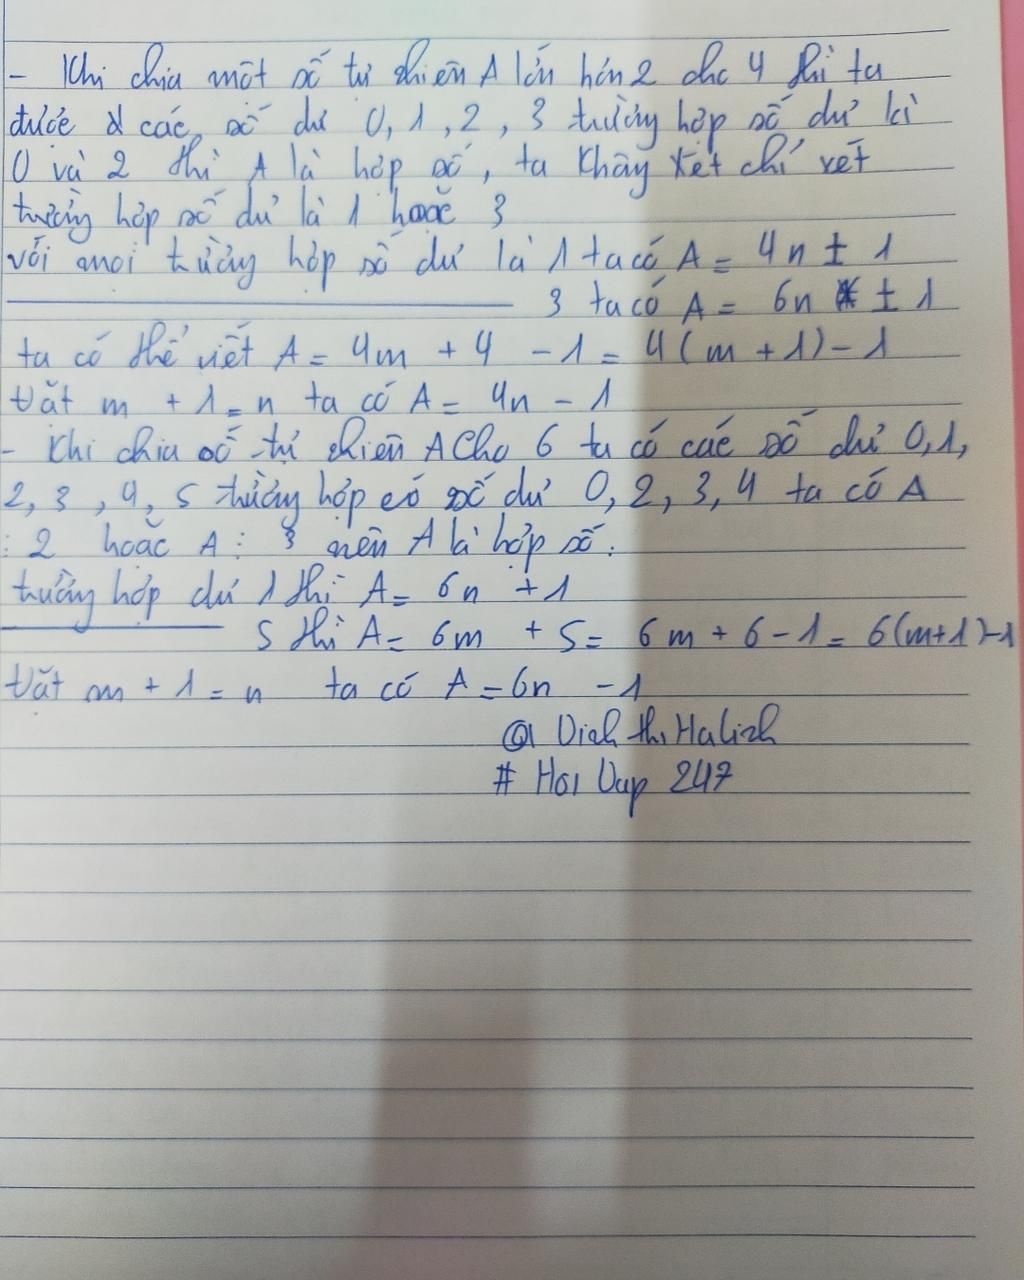 - Khi chia một số tự nhiên A lớn hơn 2 cho 4 thì ta
được các số dư 0, 1, 2, 3 trường hợp số dư là
0 và 2 thì A là hợp số, ta không xét chỉ xét
trường hợp số dư là 1 hoặc 3
với mọi trường hợp số dư là 1 ta có A = 4n ± 1
3 ta có A = 6n ± 1
ta có thể viết A = 4m + 4 - 1 = 4(m + 1) - 1
Đặt m + 1 = n ta có A = 4n - 1
- Khi chia số tự nhiên A cho 6 ta có các số dư 0, 1,
2, 3, 4, 5 trường hợp có số dư 0, 2, 3, 4 ta có A
⋮ 2 hoặc A ⋮ 3 nên A là hợp số.
trường hợp dư 1 thì A = 6n + 1
5 thì A = 6m + 5 = 6m + 6 - 1 = 6(m+1) - 1
Đặt m + 1 = n ta có A = 6n - 1
@ Dinh thi Halinh
# Hoi Dap 247